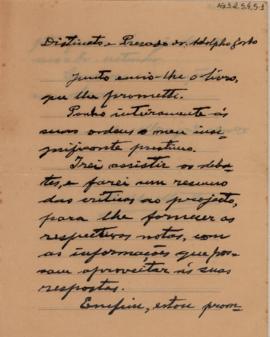 Distincto e Prezado Dr. Adolpho Gordo
Junto envio-lhe o livro,
que lhe prometti.
Ponho inteiramente ás
suas ordens o meu insi-
gnificante prestimo.
Irei assistir os deba-
tes, e farei um resumo
das criticas ao projecto,
para lhe fornecer as
respectivas notas, com
as informações que pos-
sam aproveitar ás suas
respostas.
Emfim, estou prom-